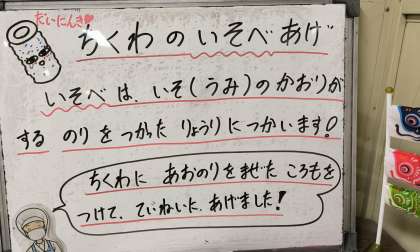 だいにんき♥
ちくわのいそべあげ
いそべは、いそ(うみ)のかおりが
する のりをつかった りょうりにつかいます!
ちくわに あおのりをまぜた ころもを
つけて、ていねいに、あげました!